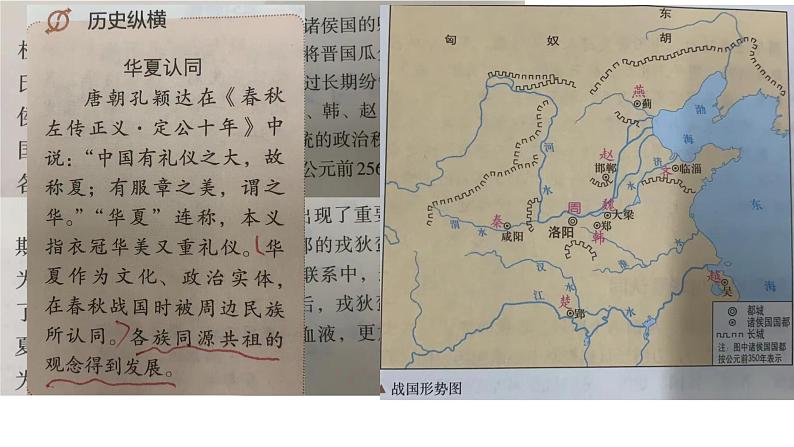 历史纵横
华夏认同
唐朝孔颖达在《春秋
左传正义·定公十年》中
说：“中国有礼仪之大，故
称夏；有服章之美，谓之
华。”“华夏”连称，本义
指衣冠华美又重礼仪。华
夏作为文化、政治实体，
在春秋战国时被周边民族
所认同。各族同源共祖的
观念得到发展。
诸侯国的
将晋国瓜
过长期纷
、韩、赵
统的政治
公元前256
出现了重要
部的戎狄蛮
联系中，
后，戎狄
血液，更
东
胡
匈 奴
燕
蓟
渤
海
赵
邯郸
河
水
济
水
齐
临淄
秦
咸阳
渭
水
周
洛阳
魏
大梁
郑
韩
淮
水
东
海
汉
水
越
吴
楚
郢
江
水
都城
诸侯国国都
长城
注：图中诸侯国国都
按公元前350年表示
战国形势图